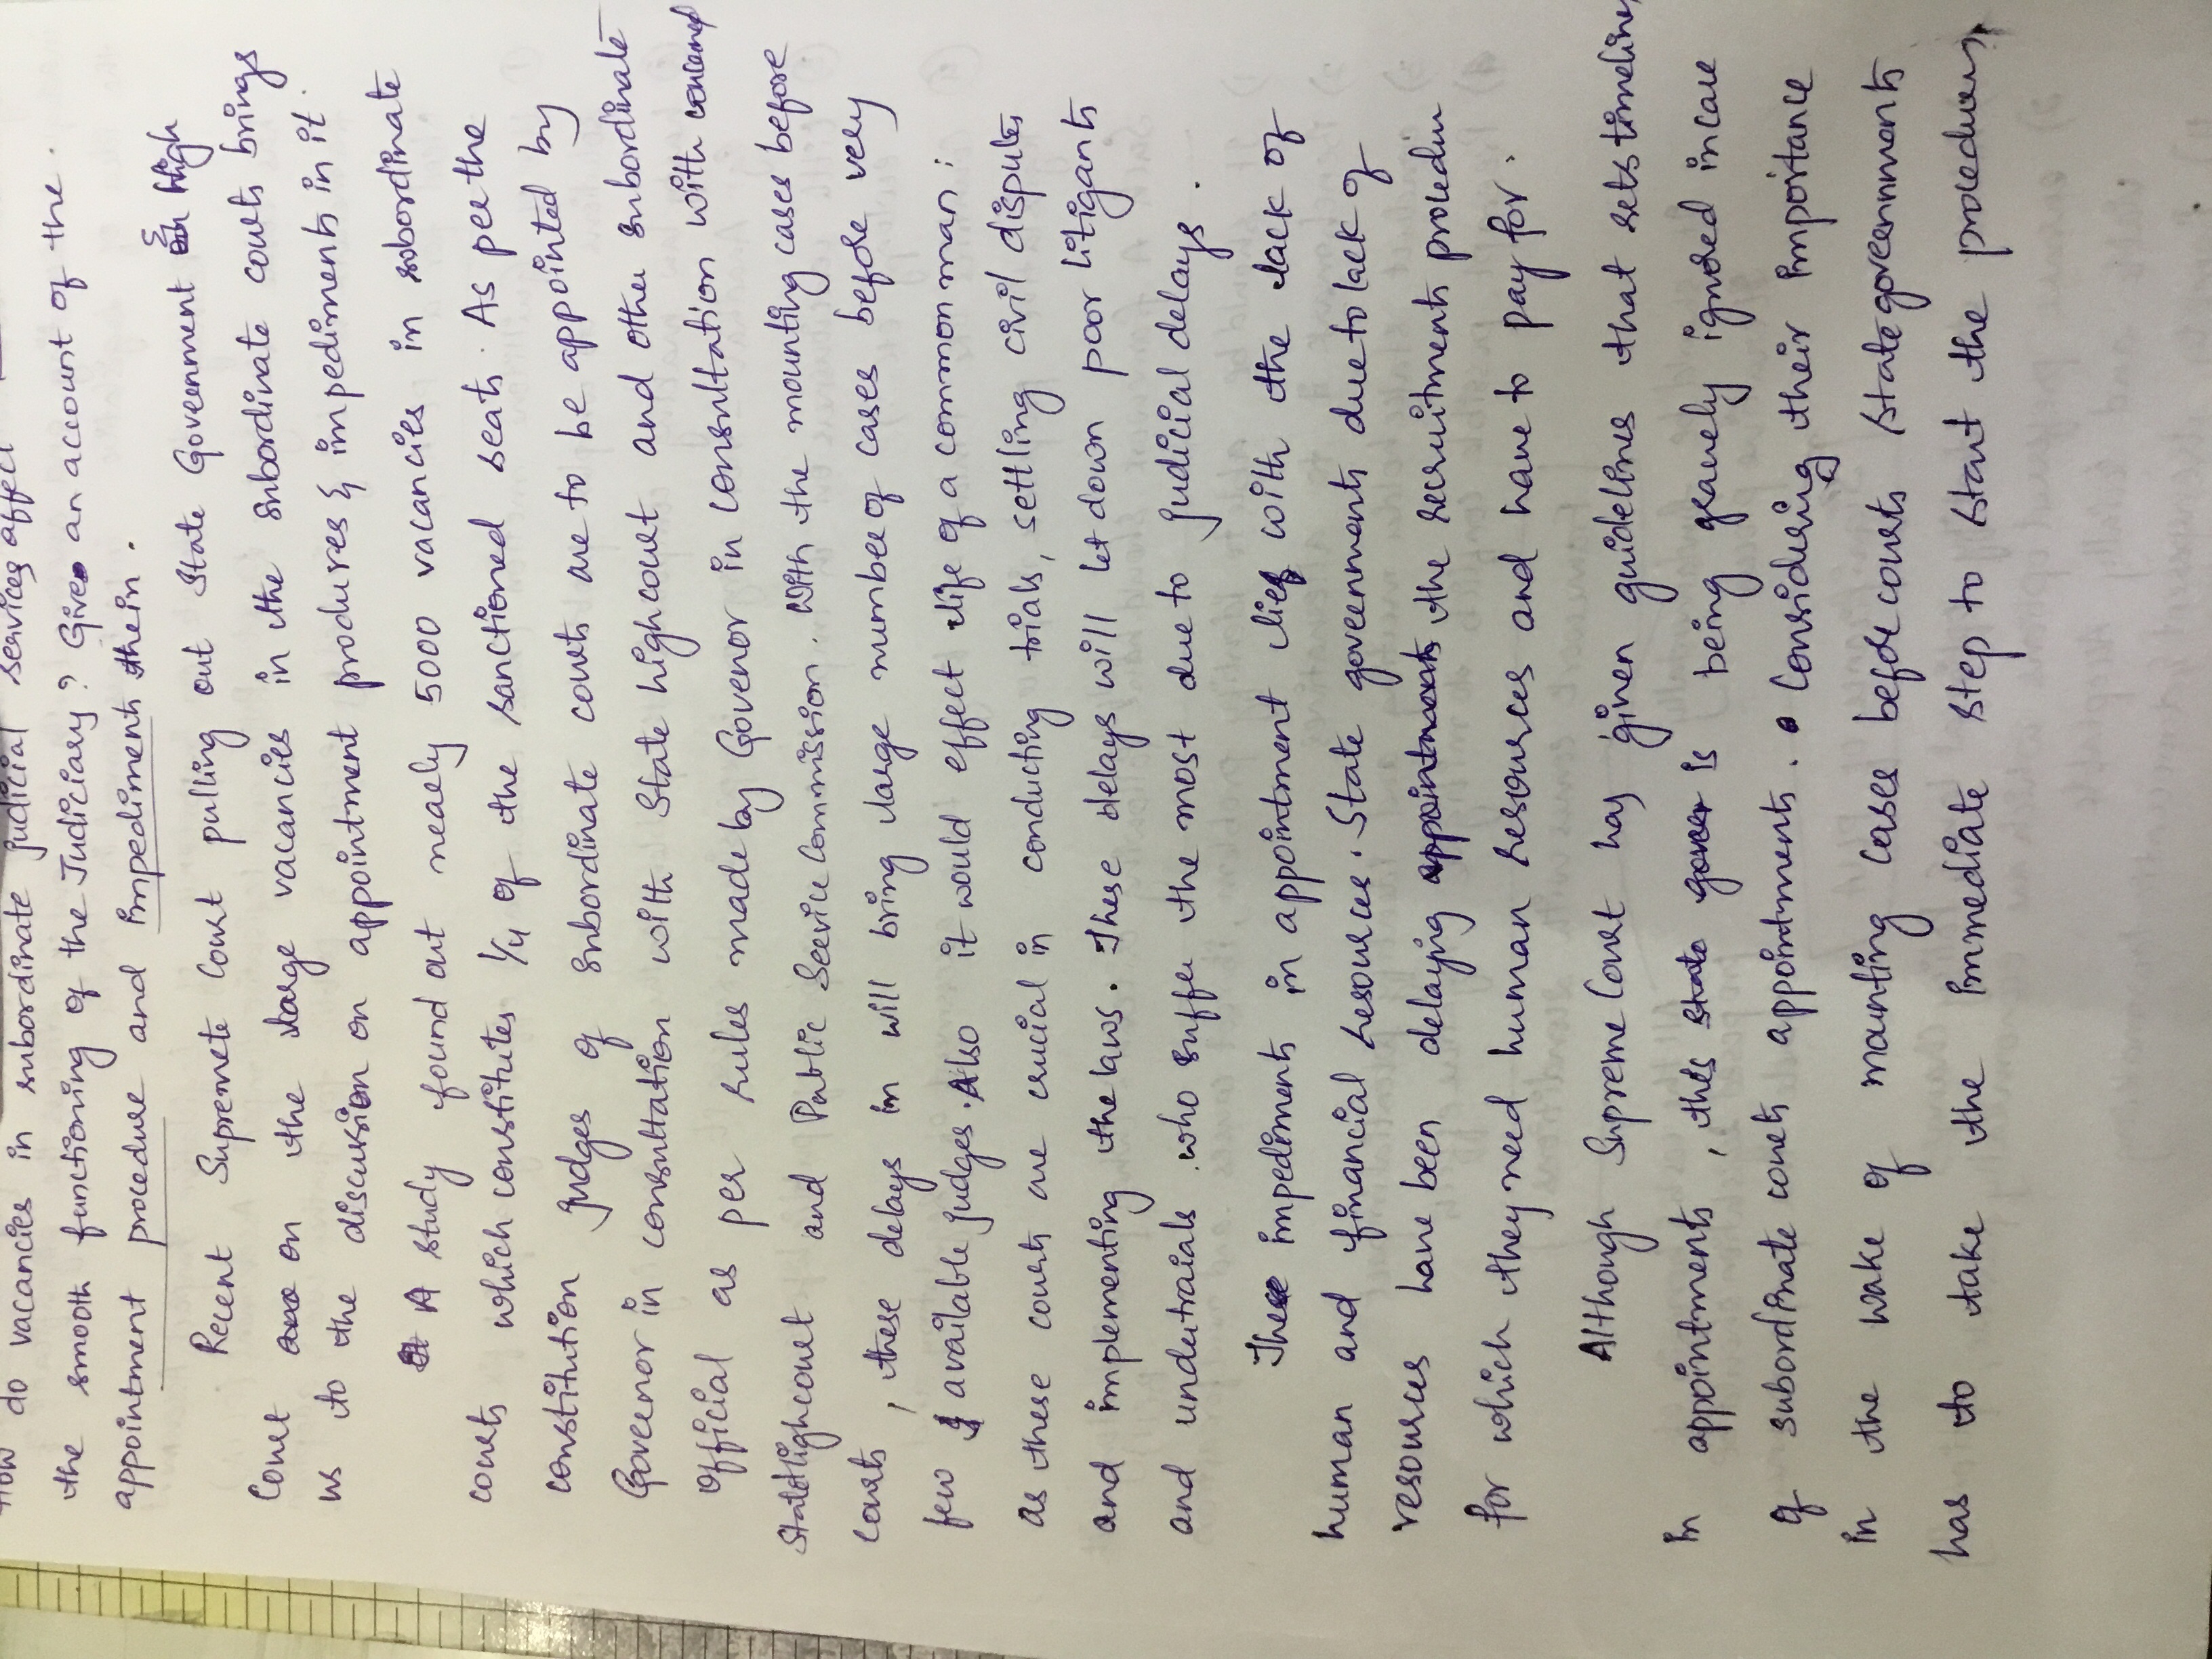 How do vacancies in subordinate judicial services affect
the smooth functioning of the Judiciary? Give an account of the
appointment procedure and impediments thein.
Recent Supremete Court pulling out State Government & High
Court on the large vacancies in the subordinate courts brings
us to the discussion on appointment produres & impediments in it.
A study found out nearly 5000 vacancies in subordinate
courts which constitutes 1/4 of the sanctioned seats. As per the
constitution judges of subordinate courts are to be appointed by
Governor in consultation with State high court and other subordinate
official as per rules made by Governor in consultation with concerned
State Highcourt and Public Service Commission. With the mounting cases before
courts, these delays in will bring large number of cases before very
few available judges. Also it would effect life of a common man;
as these courts are crucial in conducting trials, settling civil disputes
and implementing the laws. These delays will let down poor litigants
and undertraials who suffer the most due to judicial delays.
These impediments in appointment lies with the lack of
human and financial resources. State governments due to lack of
resources have been delaying appointments the recruitments procedure
for which they need human resources and have to pay for.
Although Supreme Court has given guidelines that sets timelines
in appointments, this state gover is being gravely ignored in case
of subordinate courts appointments. Considering their importance
in the wake of mounting cases before courts state governments
has to take the immediate step to start the procedures